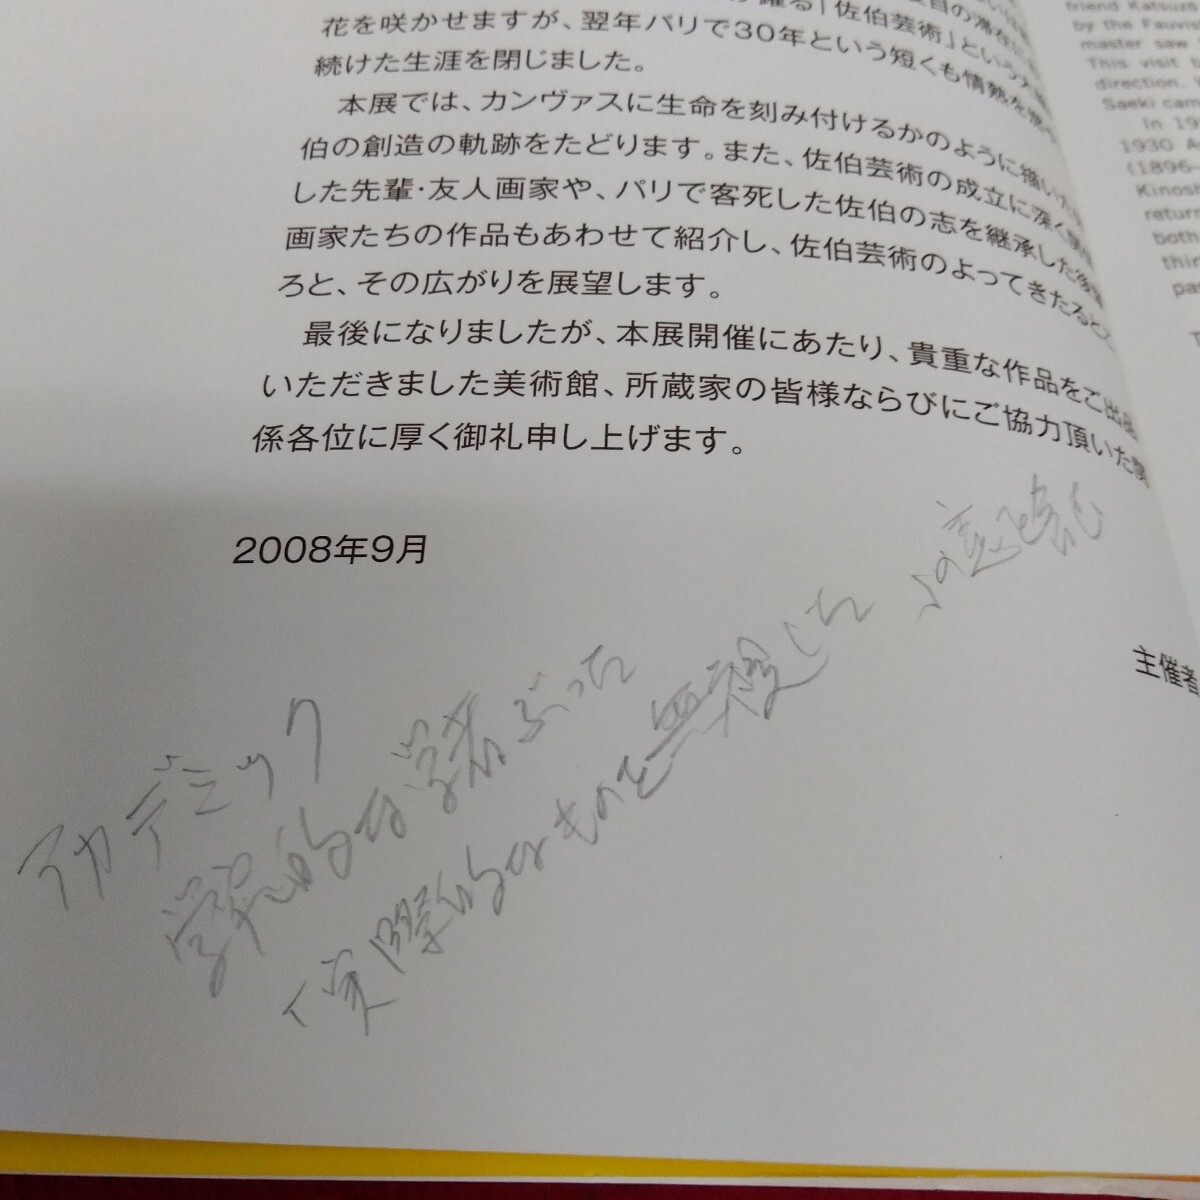 躍る「佐伯芸術」という
花を咲かせますが、翌年パリで30年という短くも情熱を
続けた生涯を閉じました。
本展では、カンヴァスに生命を刻み付けるかのように描いた
伯の創造の軌跡をたどります。また、佐伯芸術の成立に深く
した先輩・友人画家や、パリで客死した佐伯の志を継承した後
画家たちの作品もあわせて紹介し、佐伯芸術のよってきたるとこ
ろと、その広がりを展望します。
最後になりましたが、本展開催にあたり、貴重な作品をご出品
いただきました美術館、所蔵家の皆様ならびにご協力頂いた関
係各位に厚く御礼申し上げます。
2008年9月
主催者
アカデミック
学究的な学者ぶった
(実際的なものを無視した
friend Katsuzo
by the Fauvis
master saw
This visit
direction.
Saeki cam
In 19
1930 A
(1896-
Kinosh
return
both
thin
pa